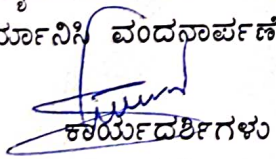 ರ್ಮಾನಿಸಿ ವಂದನಾರ್ಪಣೆ
ಕಾರ್ಯದರ್ಶಿಗಳು